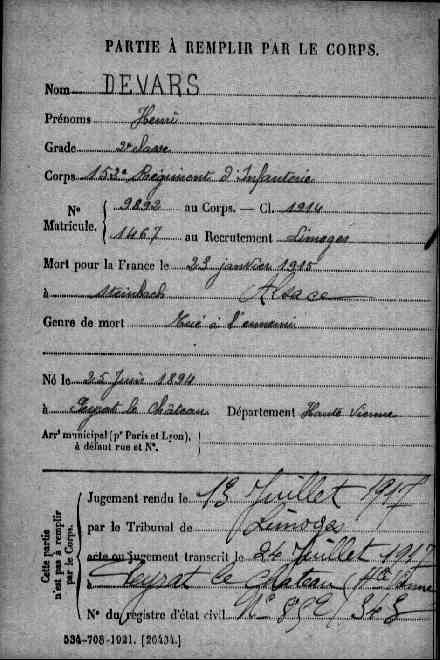 PARTIE À REMPLIR PAR LE CORPS.
Nom DEVARS
Prénoms Henri
Grade 2e classe
Corps 152e Régiment d'Infanterie
Nº Matricule. 9892 au Corps. — Cl. 1914
1467 au Recrutement Limoges
Mort pour la France le 23 janvier 1915
à Steinbach Alsace
Genre de mort Tué à l'ennemi
Né le 25 Juin 1894
à Peyrat le Château Département Haute Vienne
Arrt municipal (pr Paris et Lyon),
à défaut rue et Nº.
Cette partie n'est pas à remplir par le Corps.
Jugement rendu le 13 Juillet 1917
par le Tribunal de Limoges
acte ou jugement transcrit le 24 Juillet 1917
à Peyrat le Château (Hte Vienne
Nº du registre d'état civil Nº
534-708-1921. [26434.]